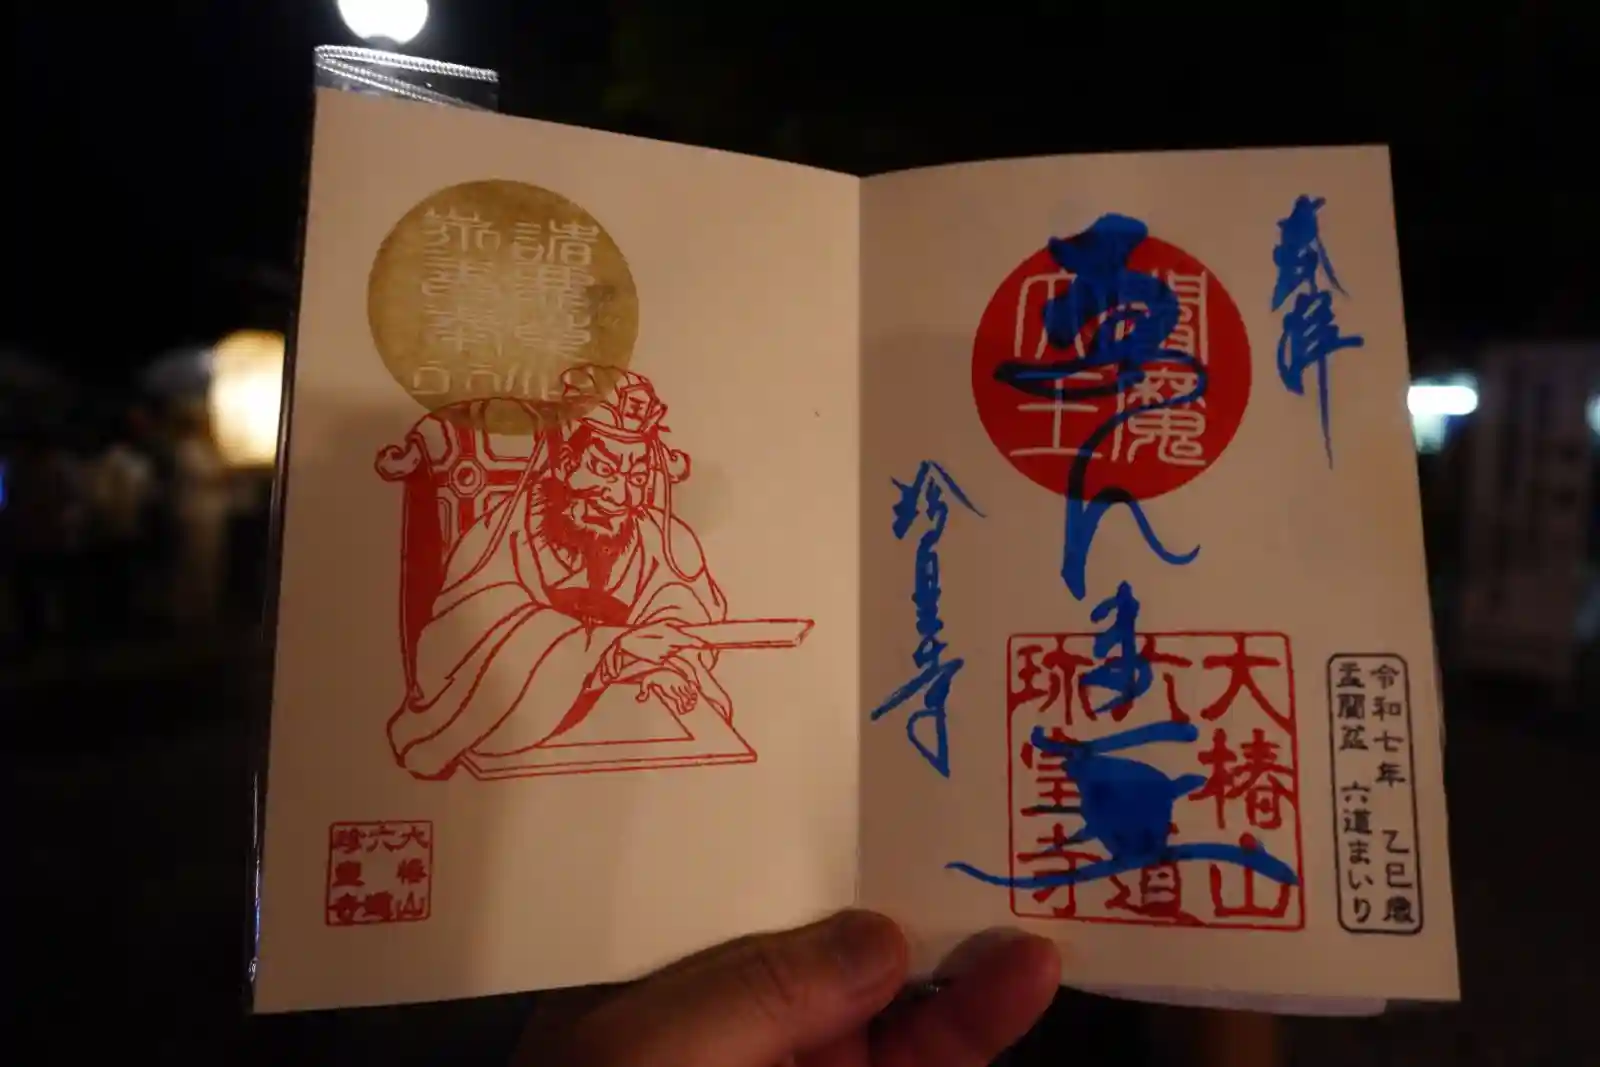 奉拝
閻魔
大王
ゑんま
大椿山
六道
珍皇寺
珍皇寺
令和七年 乙巳歳
盂蘭盆 六道まいり
諸悪莫作
衆善奉行
王
大椿山
六道
珍皇寺